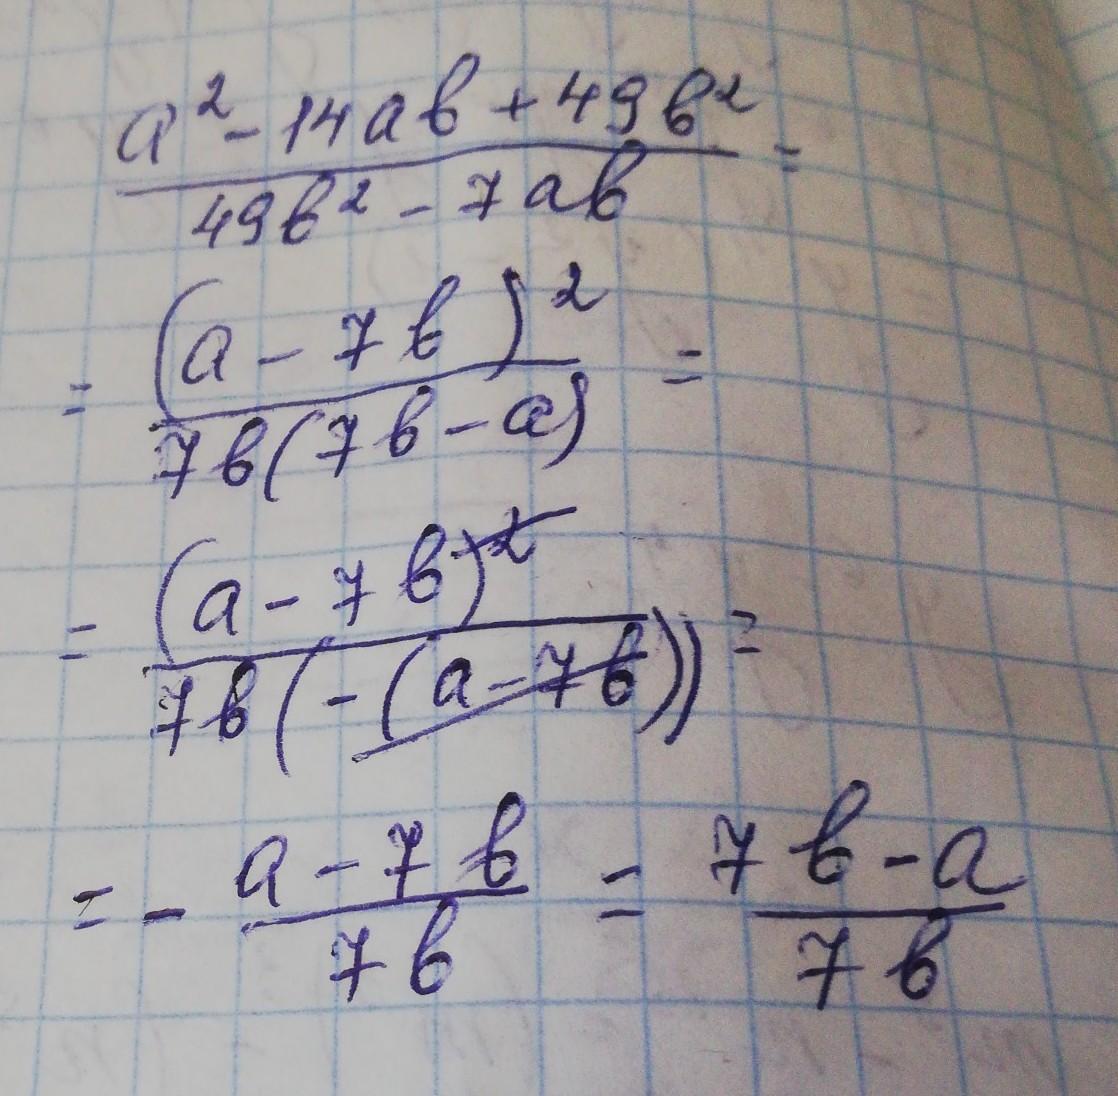 a² - 14ab + 49b² =
49b² - 7ab
= (a - 7b)² =
7b(7b - a)
= (a - 7b)² =
7b(-(a - 7b))
= - a - 7b = 7b - a
7b 7b